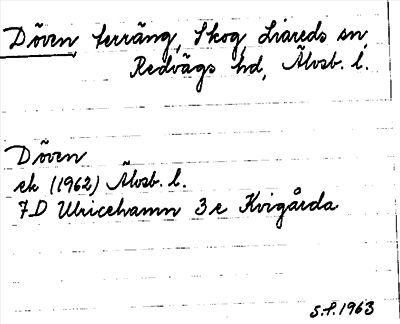 Döven, terräng, Skog, Liareds sn,
Redvägs hd, Älvsb. l.
Döven
ek (1962) Älvsb. l.
7D Ulricehamn 3e Kvigårda
S.P. 1963